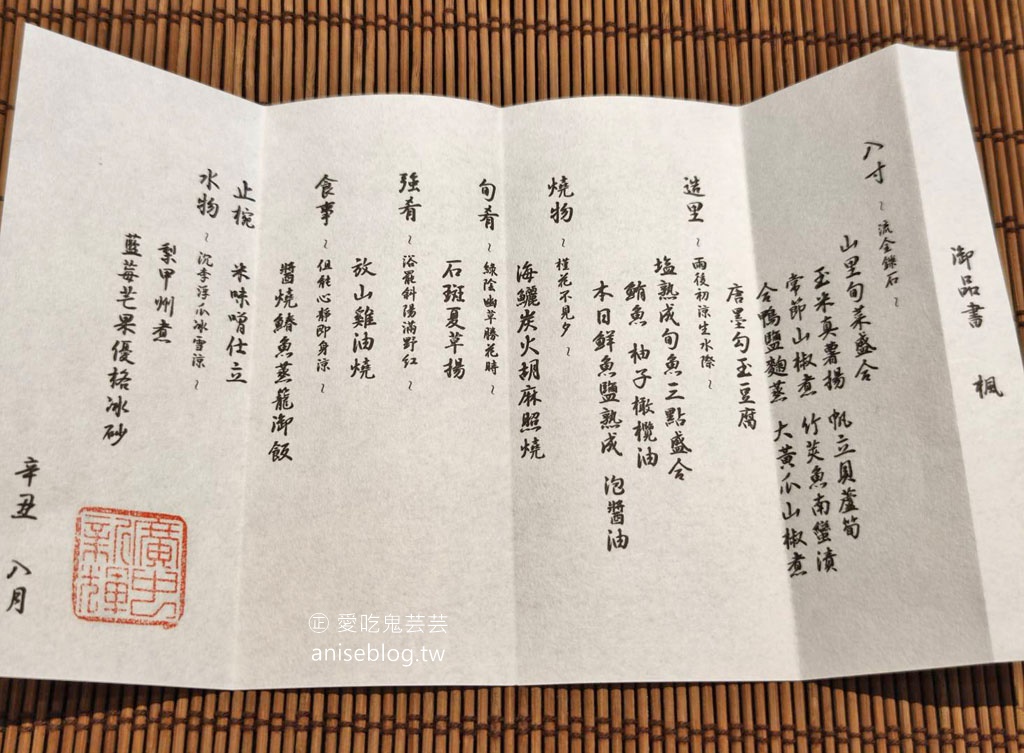 御品書　楓
八寸 ~ 流金鑠石 ~
山里旬菜盛合　帆立貝蘆筍
玉米真薯揚　竹筴魚南蠻漬
常節山椒煮　大黃瓜山椒煮
合鴨鹽麴蒸
唐墨勾玉豆腐
造里 ~ 雨後初涼生水際 ~
塩熟成旬魚三點盛合
鮪魚　柚子橄欖油
本日鮮魚鹽熟成　泡醬油
燒物 ~ 槿花不見夕 ~
海鱺炭火胡麻照燒
旬肴 ~ 綠陰幽草勝花時 ~
石斑夏草揚
強肴 ~ 浴罷斜陽滿野紅 ~
放山雞油燒
食事 ~ 但能心靜即身涼 ~
醬燒鰆魚蒸籠御飯
止椀　米味噌仕立
水物 ~ 沉李浮瓜冰雪涼 ~
梨甲州煮
藍莓芒果優格冰砂
辛丑　八月
㊣ 愛吃鬼芸芸
aniseblog.tw